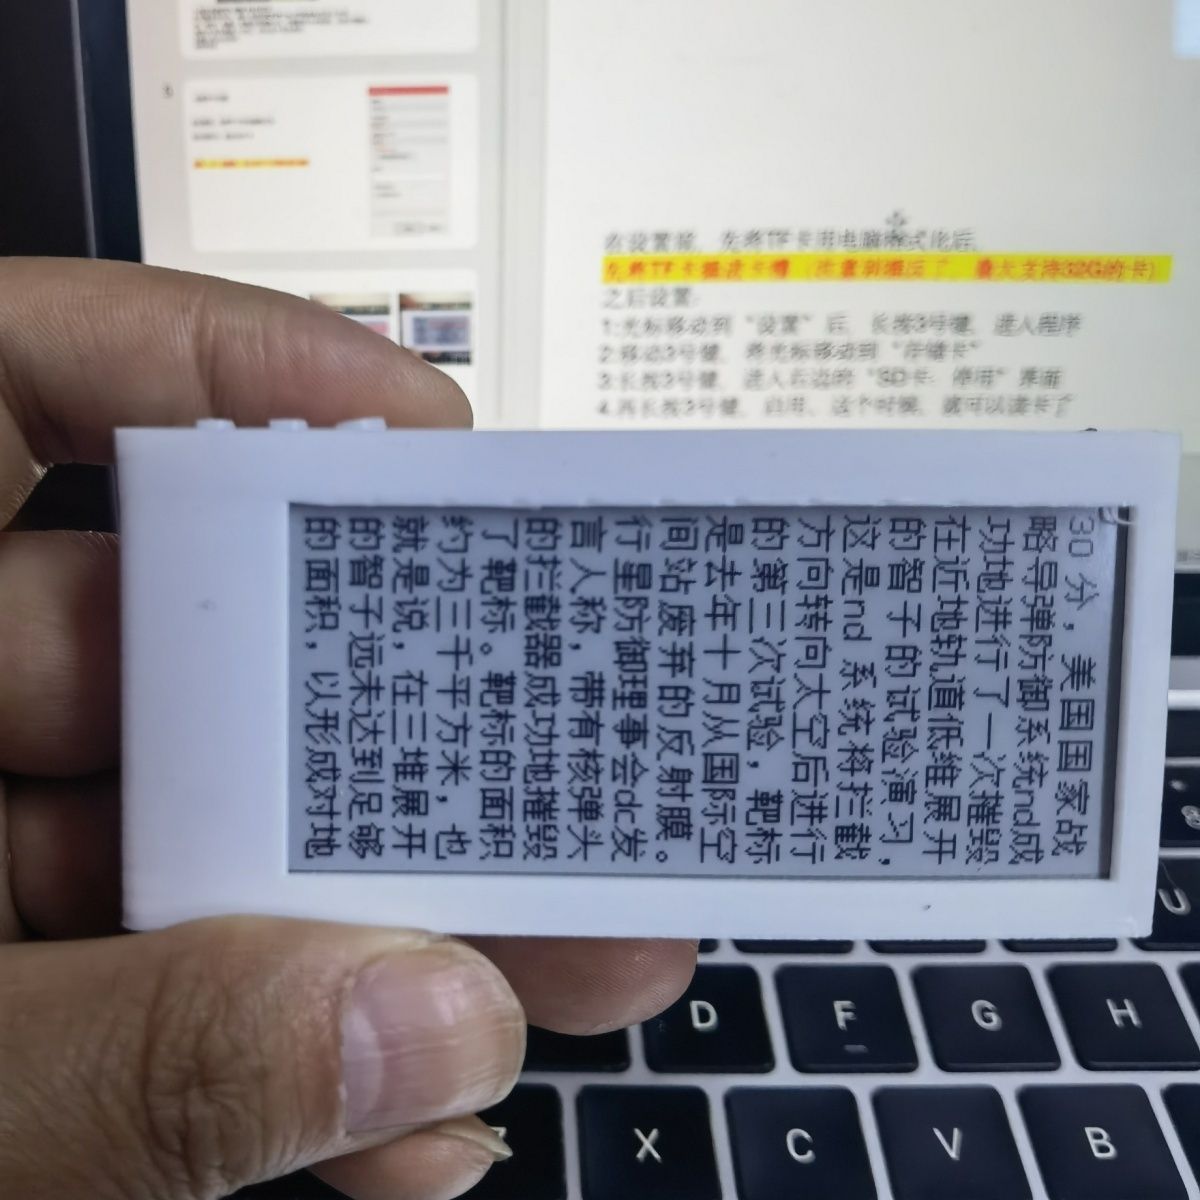 在设置前，先将TF卡用电脑格式化后，
先将TF卡插进卡槽（注意别插反了，最大支持32G的卡）
之后设置：
1:光标移动到“设置”后，长按3号键，进入程序
2:移动3号键，将光标移动到“存储卡”
3:长按3号键，进入右边的“SD卡：停用”界面
4.再长按3号键，启用，这个时候，就可以读卡了
30 分，美国国家战
略导弹防御系统nd成
功地进行了一次摧毁
在近地轨道低维展开
的智子的试验演习，
这是nd 系统将拦截
方向转向太空后进行
的第三次试验，靶标
是去年十月从国际空
间站废弃的反射膜。
行星防御理事会dc发
言人称，带有核弹头
的拦截器成功地摧毁
了靶标。靶标的面积
约为三千平方米，也
就是说，在三堆展开
的智子远未达到足够
的面积，以形成对地
U
D F G H
X C V B